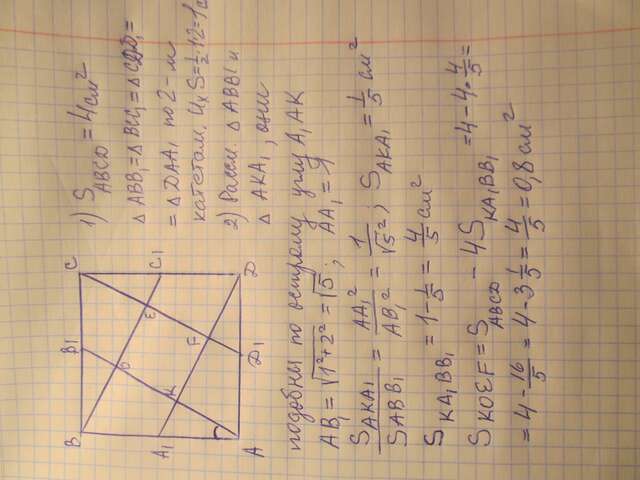 B B1 C
O
E
A1 K F C1
A D1 D
1) S ABCD = 4 см²
△ ABB₁ = △ BCC₁ = △ CDD₁ =
= △ DAA₁ по 2-м
катетам. Их S = ½·1·2 = 1 с
2) Рассм. △ ABB1 и
△ AKA₁, они
подобны по острому углу A₁AK
AB₁ = √1²+2² = √5; AA₁ = 1
S AKA₁ / S ABB₁ = AA₁² / AB₁² = 1 / √5²; S AKA₁ = 1/5 см²
S KA₁BB₁ = 1 - 1/5 = 4/5 см²
S KOEF = S ABCD - 4S KA₁BB₁ = 4 - 4·4/5 =
= 4 - 16/5 = 4 - 3 1/5 = 4/5 = 0,8 см²